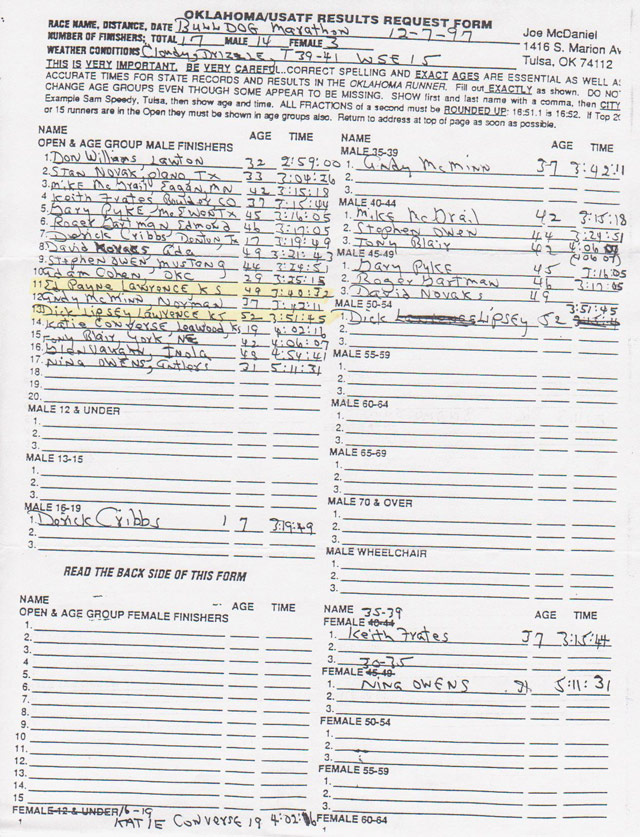 OKLAHOMA/USATF RESULTS REQUEST FORM
RACE NAME, DISTANCE, DATE BULLDOG Marathon 12-7-97
NUMBER OF FINISHERS: TOTAL 17 MALE 14 FEMALE 3
WEATHER CONDITIONS Cloudy, Drizzle, T 39-41 WSE 15
Joe McDaniel
1416 S. Marion Av
Tulsa, OK 74112
THIS IS VERY IMPORTANT. BE VERY CAREFUL..CORRECT SPELLING and EXACT AGES are ESSENTIAL AS WELL AS
ACCURATE TIMES FOR STATE RECORDS AND RESULTS IN THE OKLAHOMA RUNNER. Fill out EXACTLY as shown. DO NO
CHANGE AGE GROUPS EVEN THOUGH SOME APPEAR TO BE MISSING. SHOW first and last name with a comma, then CITY
Example Sam Speedy, Tulsa, then show age and time. ALL FRACTIONS of a second must be ROUNDED UP: 16:51.1 is 16:52. If Top 20
or 15 runners are in the Open they must be shown in age groups also. Return to address at top of page as soon as possible.
NAME AGE TIME
OPEN & AGE GROUP MALE FINISHERS
1. Don Williams Lawton 32 2:59:00
2. STAN NOVAK, plano, TX 33 3:04:26
3. Mike McGrail, Eagan, MN 42 3:15:18
4. Keith Frates Boulder CO 37 3:15:44
5. Gary Pyke, TX 45 3:16:05
6. Roger Hartman Edmond 46 3:17:05
7. Derick Cribbs, Denton Tx 17 3:19:49
8. David Novaks Ada 49 3:21:43
9. Stephen Owen, Mustang 44 3:24:51
10. Adam Cohen, OKC 3:25:15
11. Ed Payne Lawrence KS 49 3:40:32
12. Andy McMinn Norman 37 3:42:11
13. Dick Lipsey Lawrence KS 52 3:51:45
14. Katie Converse, Leawood, KS 19 4:02:16
15. Tony Blair, York, NE 42 4:06:07
16. Glen Vaughn, Inola 49 4:54:41
17. Nina Owens, Antlers 31 5:11:31
18.
19.
20.
MALE 12 & UNDER
1.
2.
3.
MALE 13-15
1.
2.
3.
MALE 16-19
1. Derick Cribbs 17 3:19:49
2.
3.
READ THE BACK SIDE OF THIS FORM
NAME AGE TIME
OPEN & AGE GROUP FEMALE FINISHERS
1.
2.
3.
4.
5.
6.
7.
8.
9.
10
11.
12.
13.
14.
15
FEMALE 12 & UNDER 16-19
1 KATIE Converse 19 4:02:16
NAME AGE TIME
MALE 35-39
1. Andy McMinn 37 3:42:11
2.
3.
MALE 40-44
1. Mike McGrail 42 3:15:18
2. Stephen Owen 44 3:24:51
3. Tony Blair 42 4:06:07
(4:06:07)
MALE 45-49
1. Gary Pyke 45 3:16:05
2. Roger Hartman 46 3:17:05
3. David Novaks 49
MALE 50-54 3:51:45
1. Dick LIPSEY 52
2.
3.
MALE 55-59
1.
2.
3.
MALE 60-64
1.
2.
3.
MALE 65-69
1.
2.
3.
MALE 70 & OVER
1.
2.
3.
MALE WHEELCHAIR
1.
2.
3.
NAME 35-39 AGE TIME
FEMALE 40-44
1. Keith Frates 37 3:15:44
2.
3. 30-35
FEMALE 45-49
1. NINA OWENS 31 5:11:31
2.
3.
FEMALE 50-54
1.
2.
3.
FEMALE 55-59
1.
2.
3.
FEMALE 60-64
1